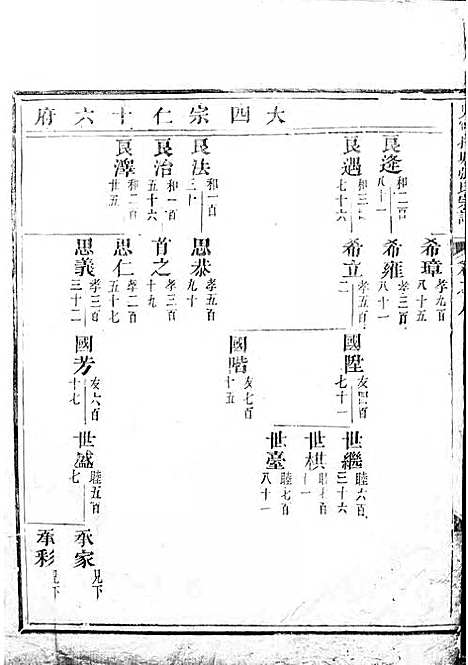 大四宗仁十六府
良逢 和二百八十一
良遇 和三百七十六
良法 和一百
良治 和一百五十六
良澤 和二百廿五
希璋 孝九百八十五
希雍 孝三百八十一
希立 孝五百二
思恭 孝五百九十
首之 孝三百十九
思仁 孝二百五十七
思義 孝三百三十二
國陞 友四百七十一
國階 友七百十五
國芳 友六百十七
世繼 睦六百三十六
世棋
世臺 睦七百八十一
世盛 睦五百七
承家 見下
承彩 見下